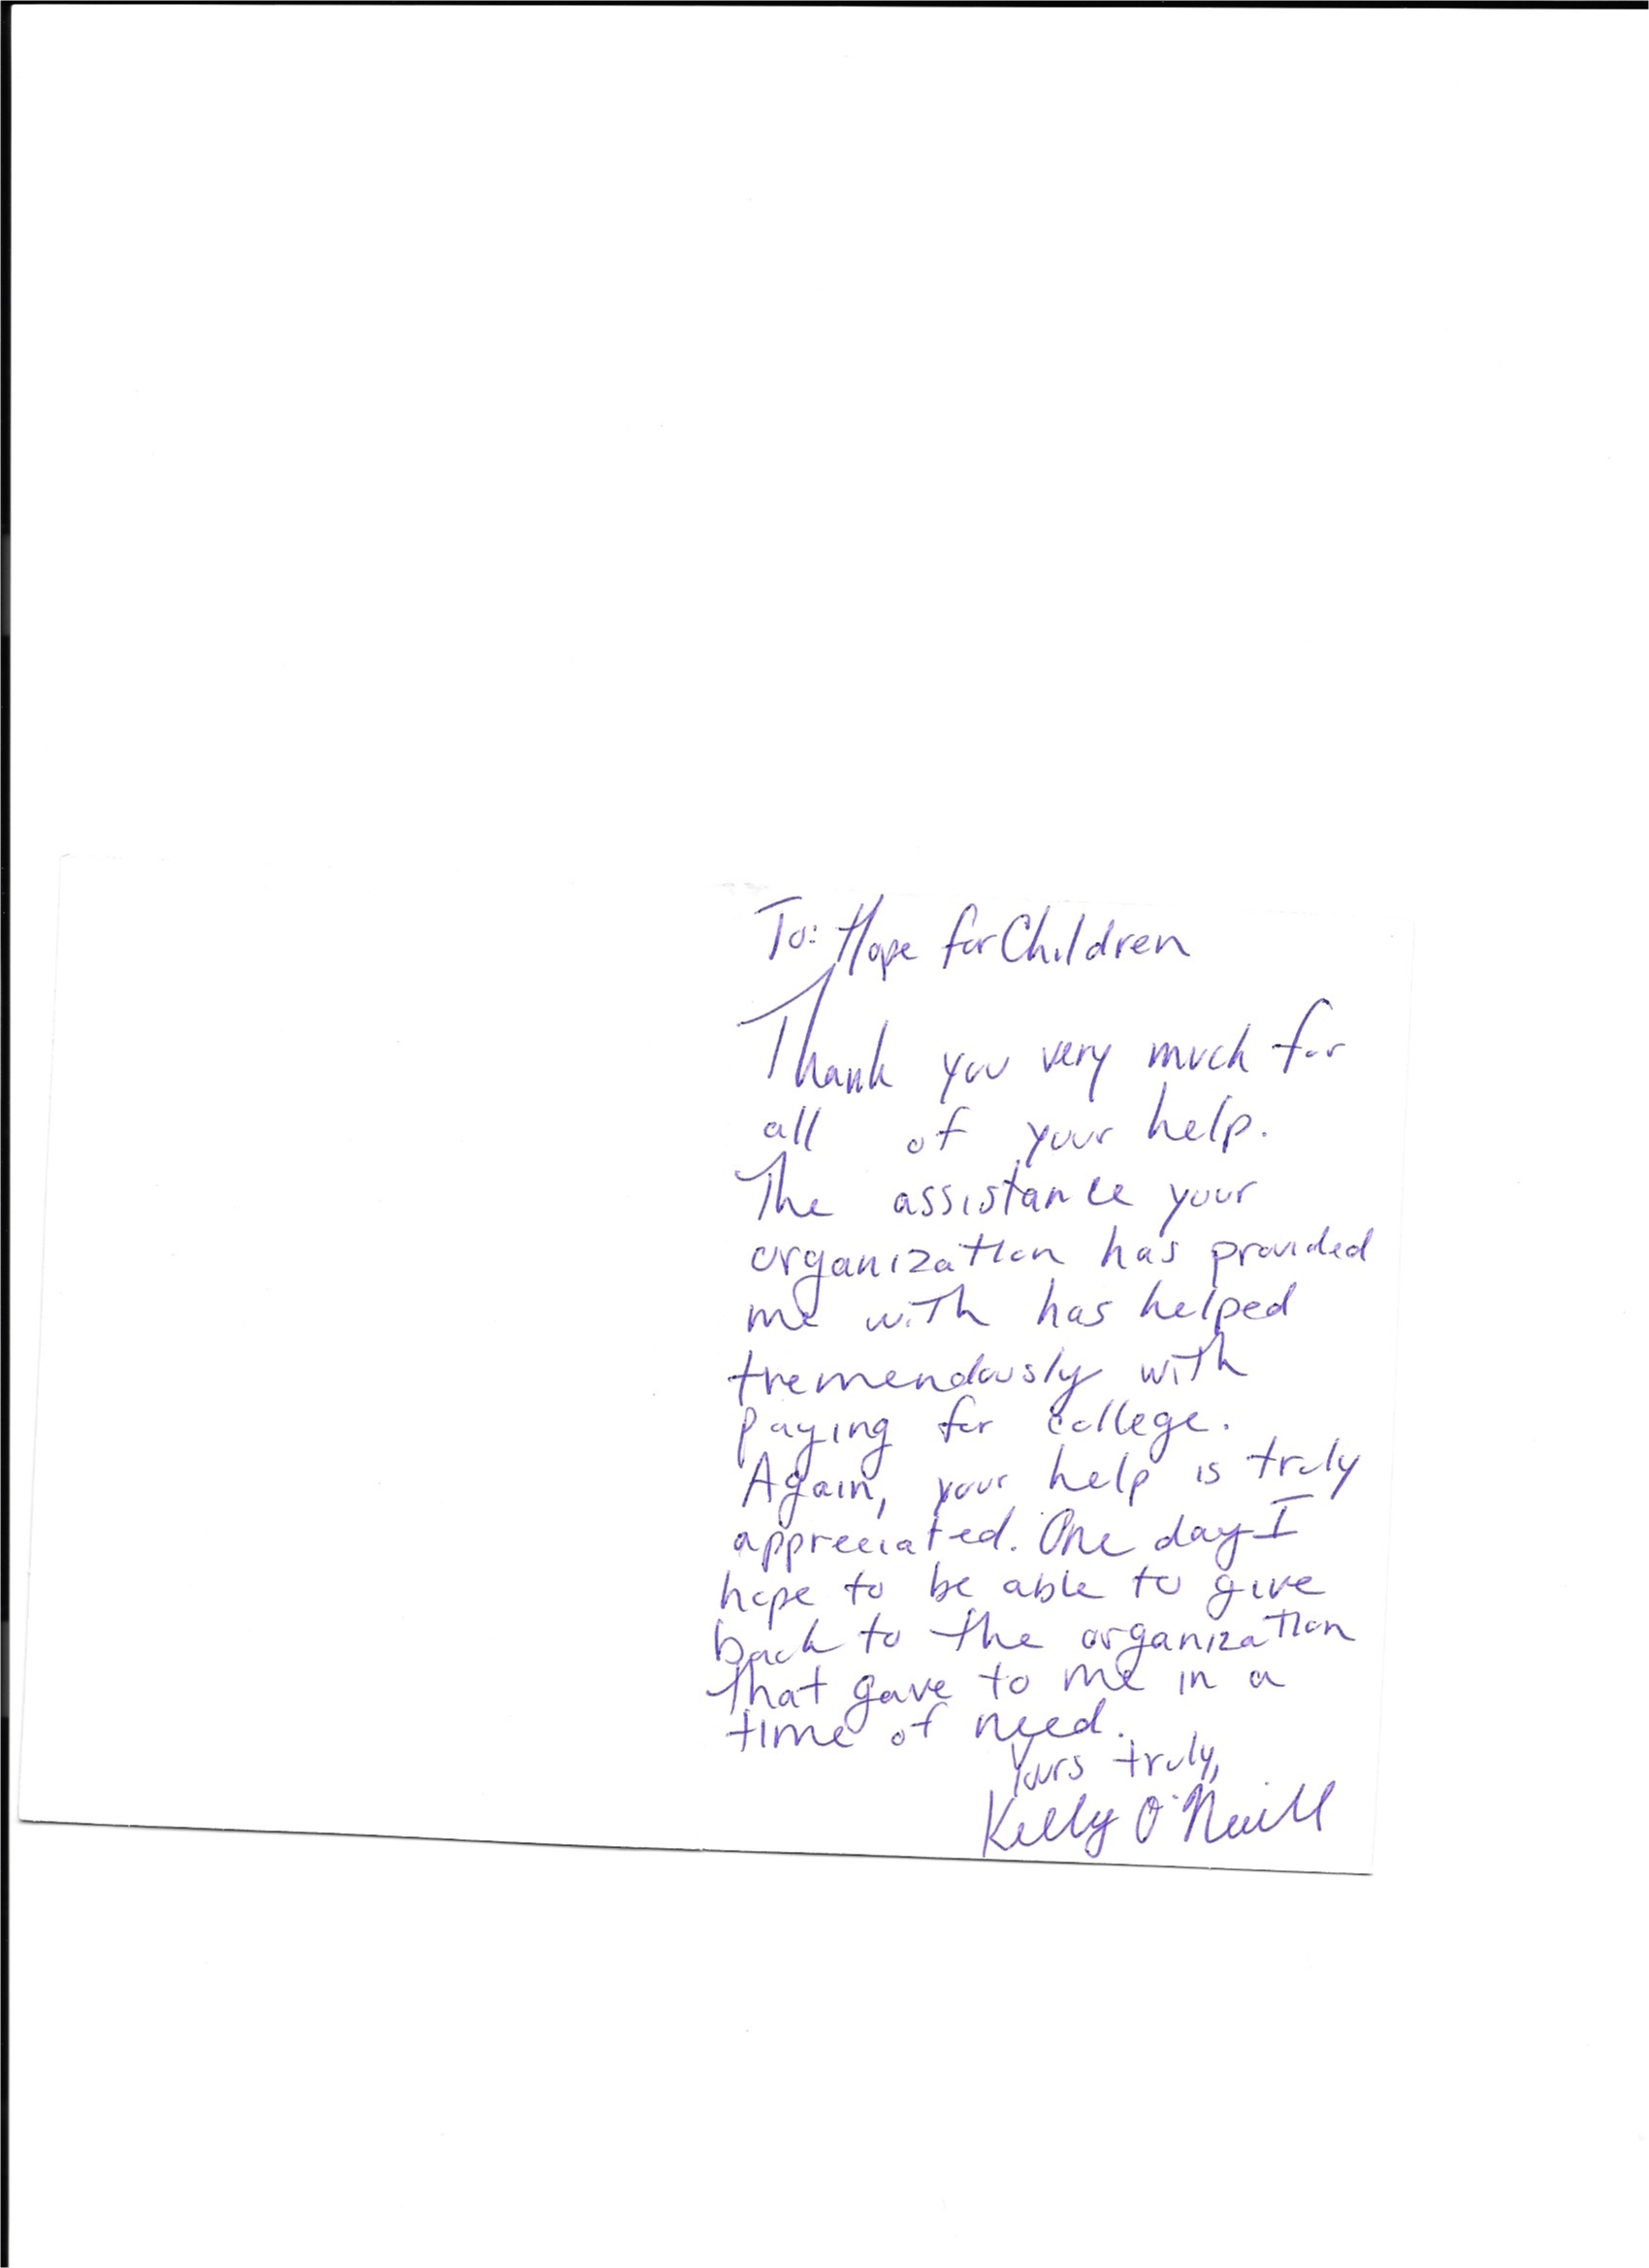 To: Hope for Children
Thank you very much for
all of your help.
The assistance your
organization has provided
me with has helped
tremendously with
paying for college.
Again, your help is truly
appreciated. One day I
hope to be able to give
back to the organization
that gave to me in a
time of need.
Yours truly,
Kelly O'Neill